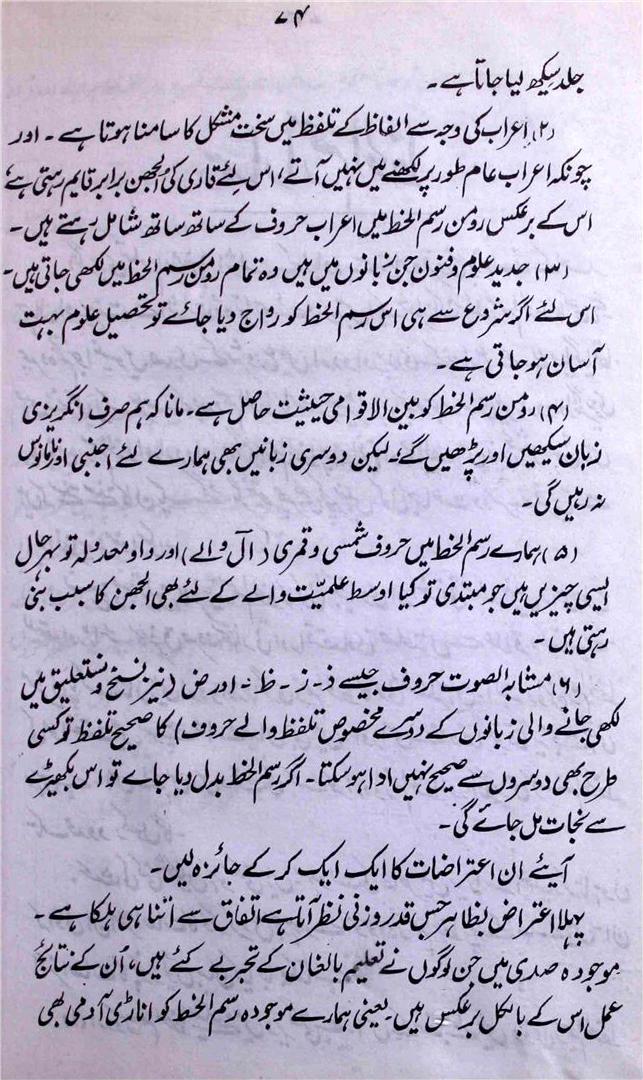 ۷۴
جلد سیکھ لیا جاتا ہے۔
(۲) اعراب کی وجہ سے الفاظ کے تلفظ میں سخت مشکل کا سامنا ہوتا ہے۔ اور
چونکہ اعراب عام طور پر لکھنے میں نہیں آتے، اس لئے قاری کی اُلجھن برابر قایم رہتی ہے
اس کے بر عکس رومن رسم الخط میں اعراب حروف کے ساتھ ساتھ شامل رہتے ہیں۔
(۳) جدید علوم و فنون جن زبانوں میں ہیں وہ تمام رومن رسم الخط میں لکھی جاتی ہیں۔
اس لئے اگر شروع سے ہی اس رسم الخط کو رواج دیا جائے تو تحصیل علوم بہت
آسان ہو جاتی ہے۔
(۴) رومن رسم الخط کو بین الاقوامی حیثیت حاصل ہے۔ مانا کہ ہم صرف انگریزی
زبان سیکھیں اور پڑھیں گے، لیکن دوسری زبانیں بھی ہمارے لئے اجنبی اور نامانوس
نہ رہیں گی۔
(۵) ہمارے رسم الخط میں حروف شمسی و قمری (آل والے) اور واو معدولہ تو بہرحال
ایسی چیزیں ہیں جو مبتدی تو کیا اوسط علمیّت والے کے لئے بھی الجھن کا سبب بنی
رہتی ہیں۔
(۶) مشابہ الصوت حروف جیسے ذ۔ ز۔ ظ۔ اور ض (نیز نسخ و نستعلیق میں
لکھی جانے والی زبانوں کے دوسرے مخصوص تلفظ والے حروف) کا صحیح تلفظ تو کسی
طرح بھی دوسروں سے صحیح نہیں ادا ہو سکتا۔ اگر رسم الخط بدل دیا جائے تو اس بکھیڑے
سے نجات مل جائے گی۔
آیئے ان اعتراضات کا ایک ایک کر کے جائزہ لیں۔
پہلا اعتراض بظاہر جس قدر وزنی نظر آتا ہے اتفاق سے اتنا ہی ہلکا ہے۔
موجودہ صدی میں جن لوگوں نے تعلیم بالغان کے تجربے کئے ہیں، اُن کے نتائج
عمل اس کے بالکل برعکس ہیں۔ یعنی ہمارے موجودہ رسم الخط کو اناڑی آدمی بھی